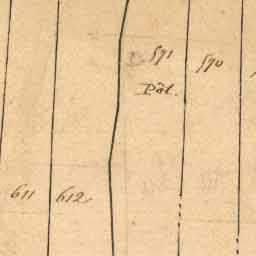 591 590
Pât.
611 612